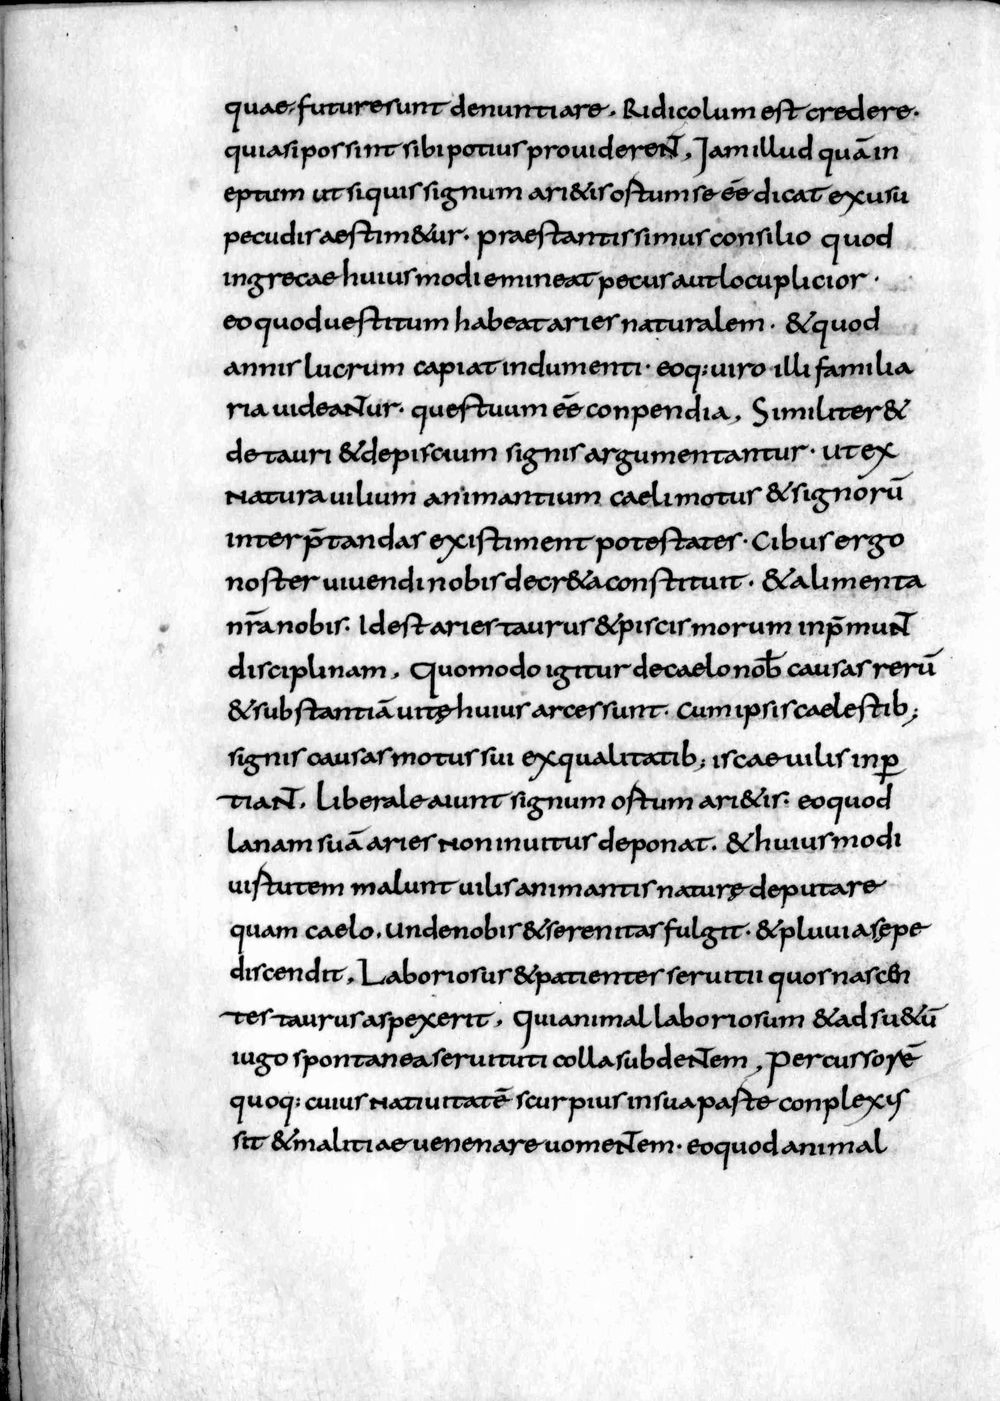 quae futuresunt denuntiare. Ridicolum est credere.
quiasi possint sibi potius prouiderent, Iam illud quā in
eptum ut siquis signum ari&is ostum se eē dicat ex usu
pecudis aestim&ur. praestantissimus consilio quod
ingrecae huiusmodi emineat pecus aut locuplicior.
eo quod uestitum habeat aries naturalem. & quod
annis lucrum capiat indumenti. eoq: uiro illi familia
ria uideantur. questuum eē conpendia, Similiter &
de tauri & de piscium signis argumentantur. ut ex
natura uilium animantium caeli motus & signorū
interp̄tandas existiment potestates. Cibus ergo
noster uiuendi nobis decr&a constituit. & alimenta
nr̄a nobis. Idest aries taurus & piscis morum inp̄munt
disciplinam, Quomodo igitur de caelo nob̄ causas rerū
& substantiā uitę huius arcessunt. cum ipsis caelestib;
signis causas motus sui ex qualitatib; iscae uilis inꝑ
tiant, Liberale aiunt signum ostum ari&is. eoquod
lanam suā aries non inuitus deponat. & huiusmodi
uistutem malunt uilis animantis naturę deputare
quam caelo. unde nobis & serenitas fulgit. & pluuia sępe
discendit, Laboriosus & patienter seruitii quos nascen
tes taurus aspexerit, Quianimal laboriosum & ad su&ū
iugo spontanea seruituti colla subdentem, Percussorē
quoq: cuius natiuitatē scurpius insua paste conplexis
sit & malitiae uenenare uomentem. eoquod animal